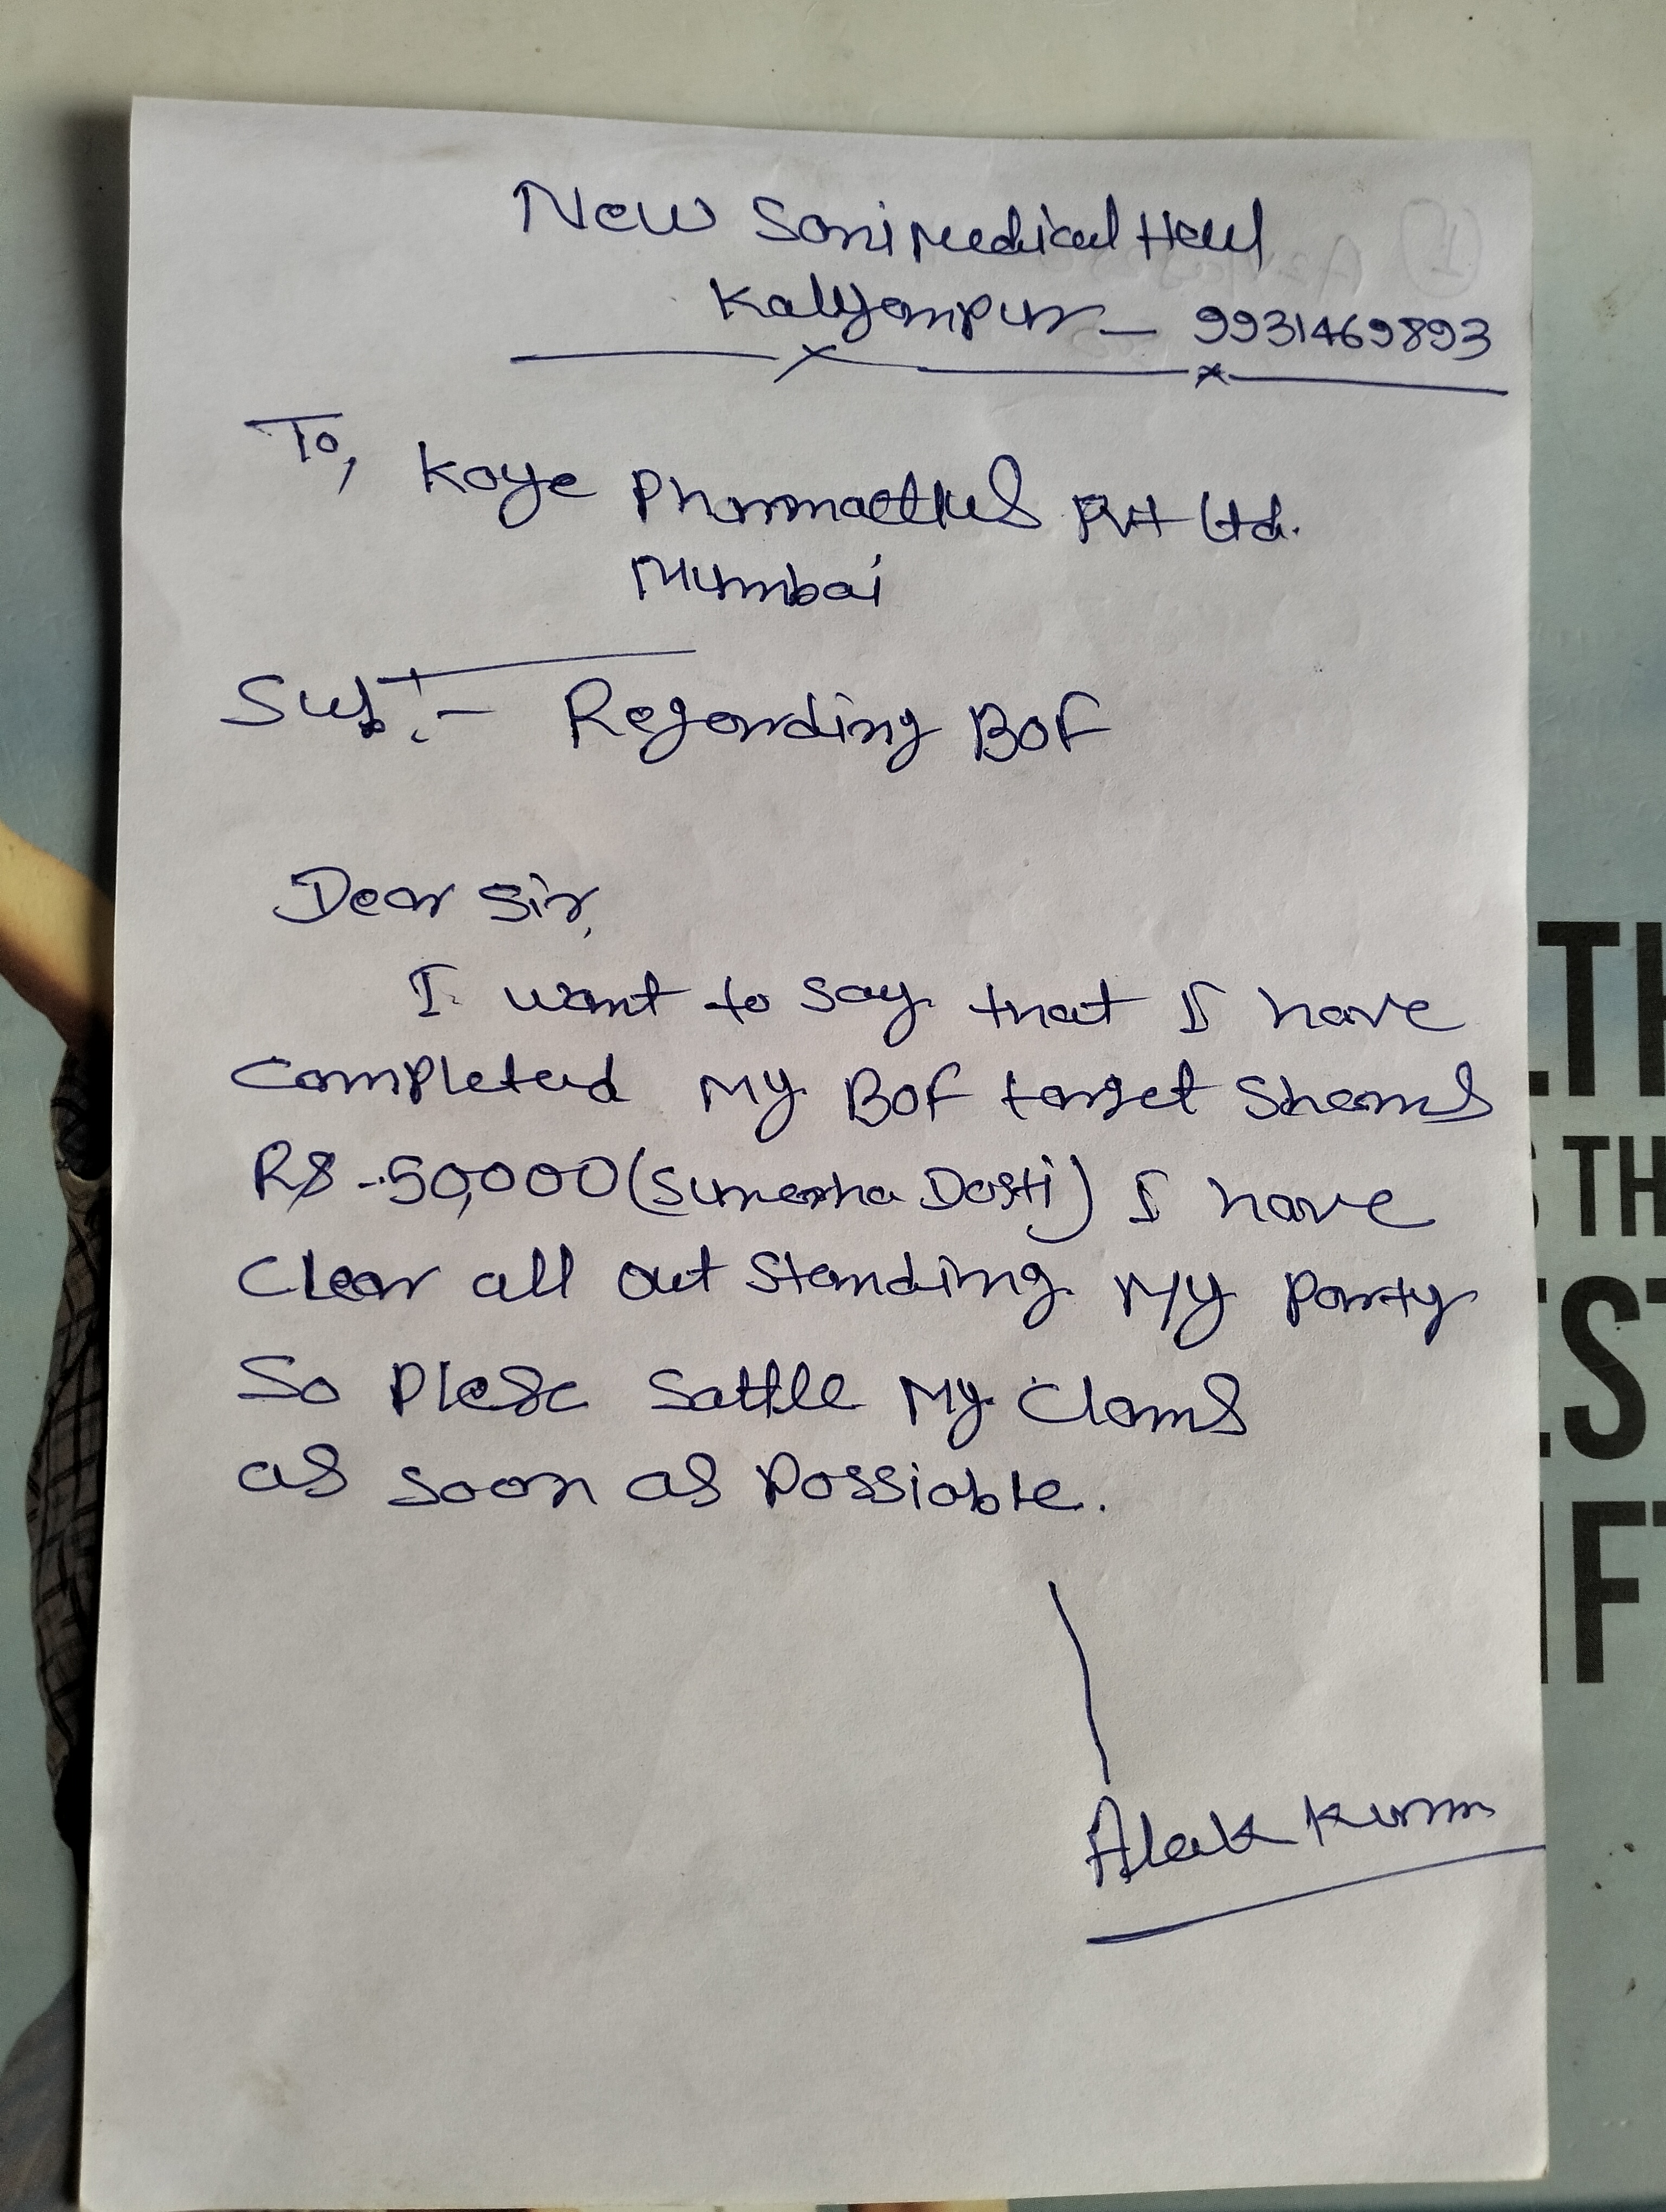 New Soni Medical Hall
Kalyanpur - 9931469893
To, Koye Pharmacties Pvt Ltd.
Mumbai
Sub:- Regarding BOF
Dear Sir,
I want to say that I have
completed My BOF target Shems
RS -50,000 (Sunehra Dosti) I have
Clear all out standing My Party
So Plese Sattle My Clams
as soon as Possiable.
Alak Kumar
LTH
S TH
EST
IFT